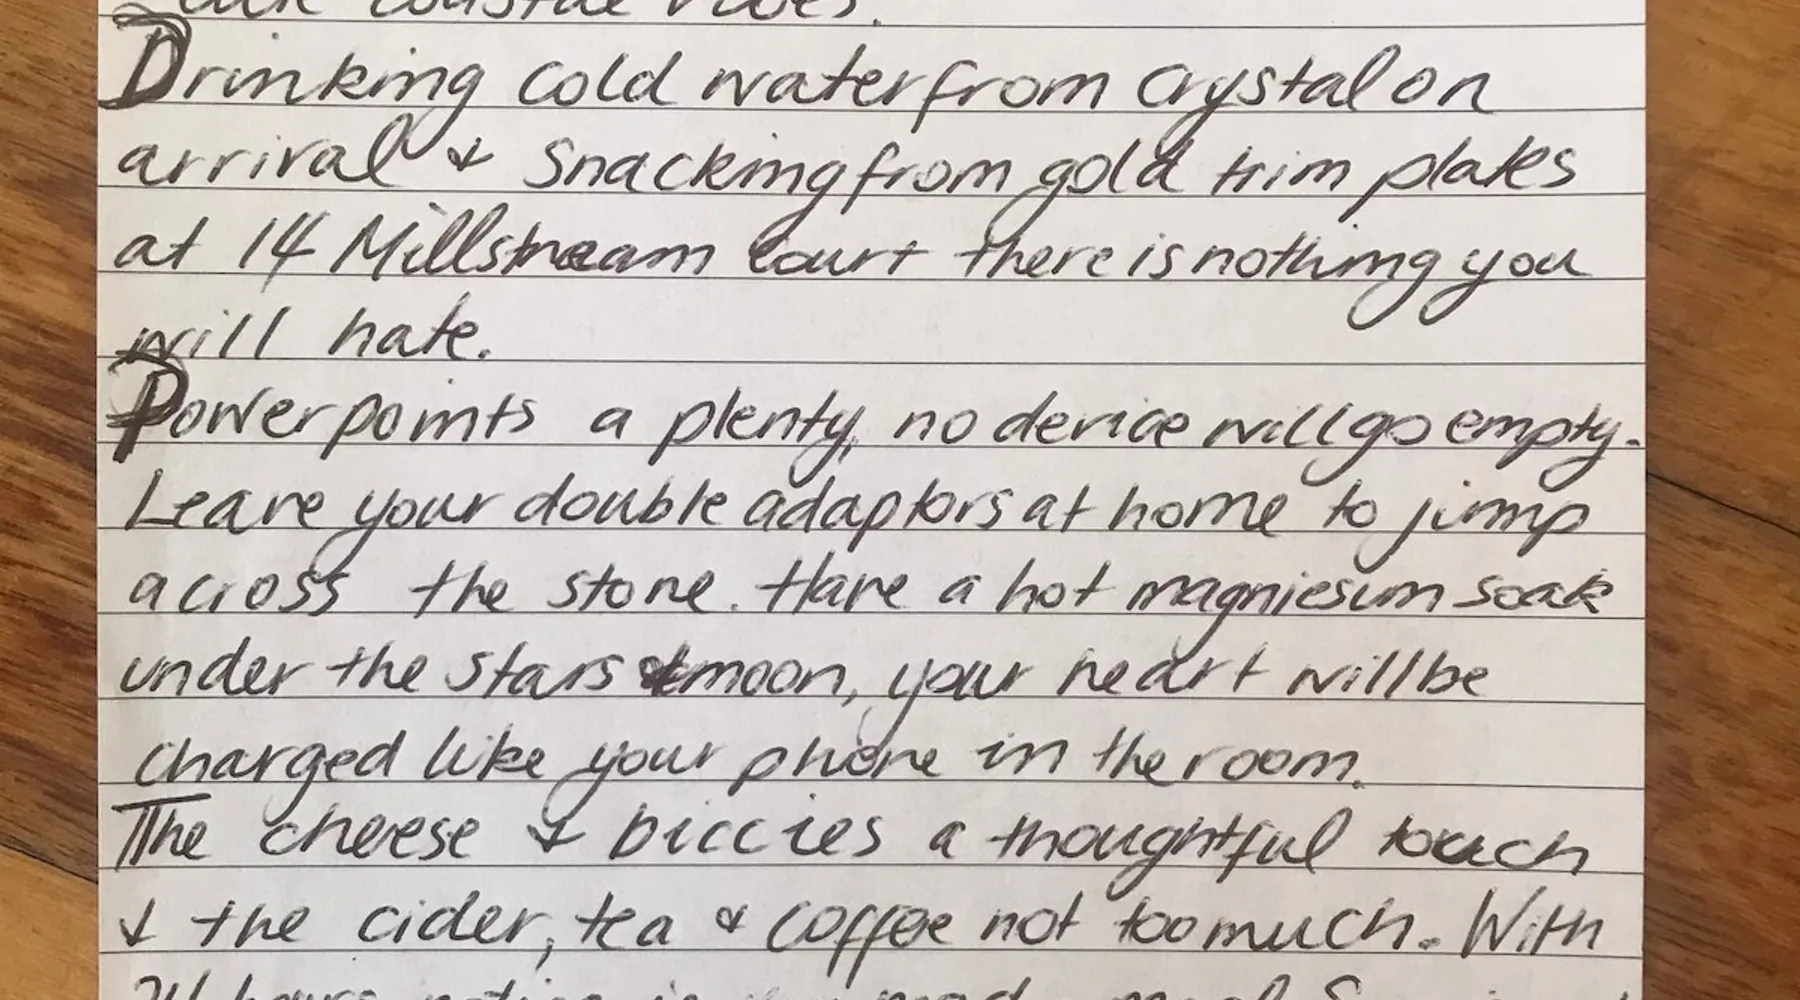 coastal vibes.
Drinking cold water from crystal on
arrival & Snacking from gold trim plates
at 14 Millstream Court there is nothing you
will hate.
Powerpoints a plenty, no device will go empty.
Leave your double adaptors at home to jump
across the stone. Have a hot magniesum soak
under the stars & moon, your heart will be
charged like your phone in the room.
The cheese & biccies a thoughtful touch
& the cider, tea & coffee not too much. With
24 hours notice